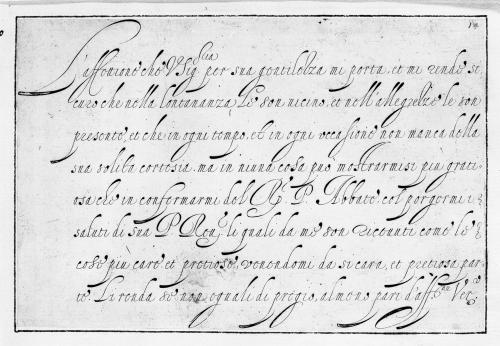 L'affetione che V. Sig.ria per sua gentilezza mi porta, et mi rende si,
curo che nella lontananza le son vicino, et nell'allegrezze le son
presente, et che in ogni tempo, et in ogni occasione non manca della
sua solita cortesia, ma in niuna cosa può mostrarmisi più grati,
osa che in confermarmi del R.mo P. Abbate col porgermi i
saluti di sua P. Ren.ma li quali da me son riceuuti come le
cose più care, et pretiose, venendomi da si cara, et pretiosa par,
te. Li renda se non eguali di pregio, almeno pari d'aff.ne Ver.